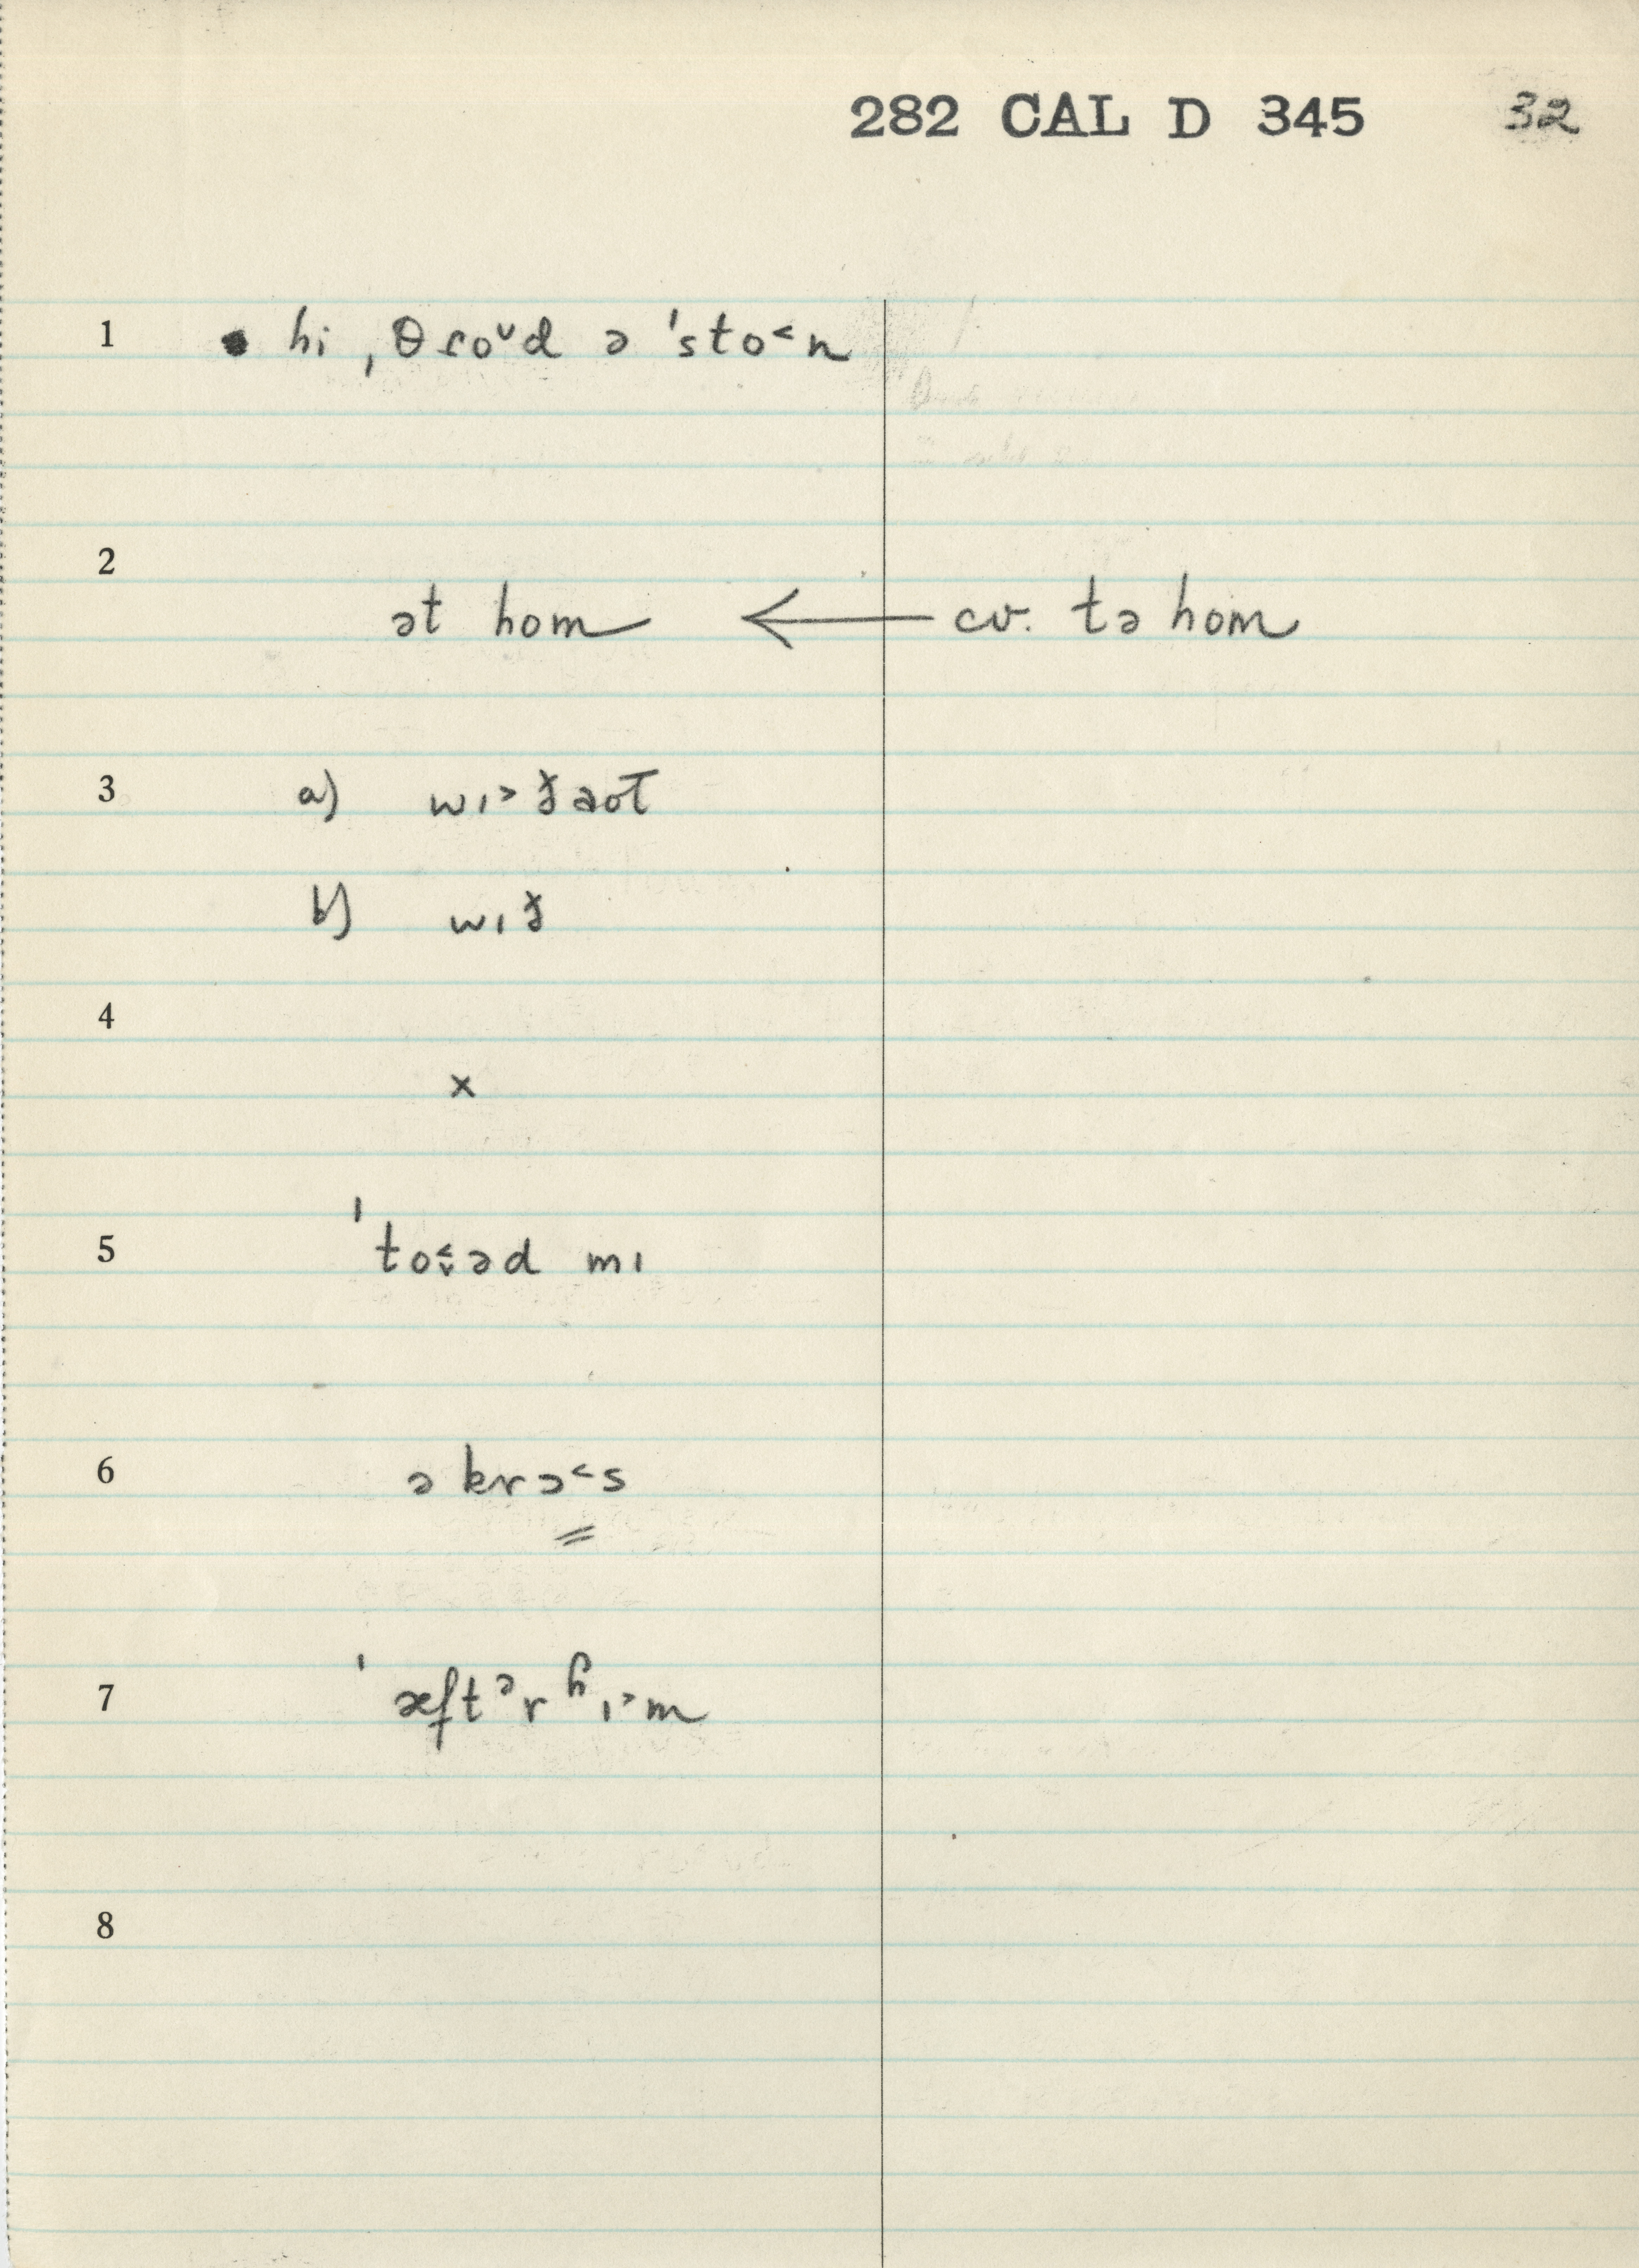 282 CAL D 345 32
1 hi ˌθɾo˅d ə ˈsto˂n
2
ət hom ← cv. tə hom
3 a) wɪ˃ðaʊt
b) wɪð
4
×
5 ˈto˂˅əd mɪ
6 əkrɔ˂s
7 ˈæftᵊr ʱɪ˃m
8